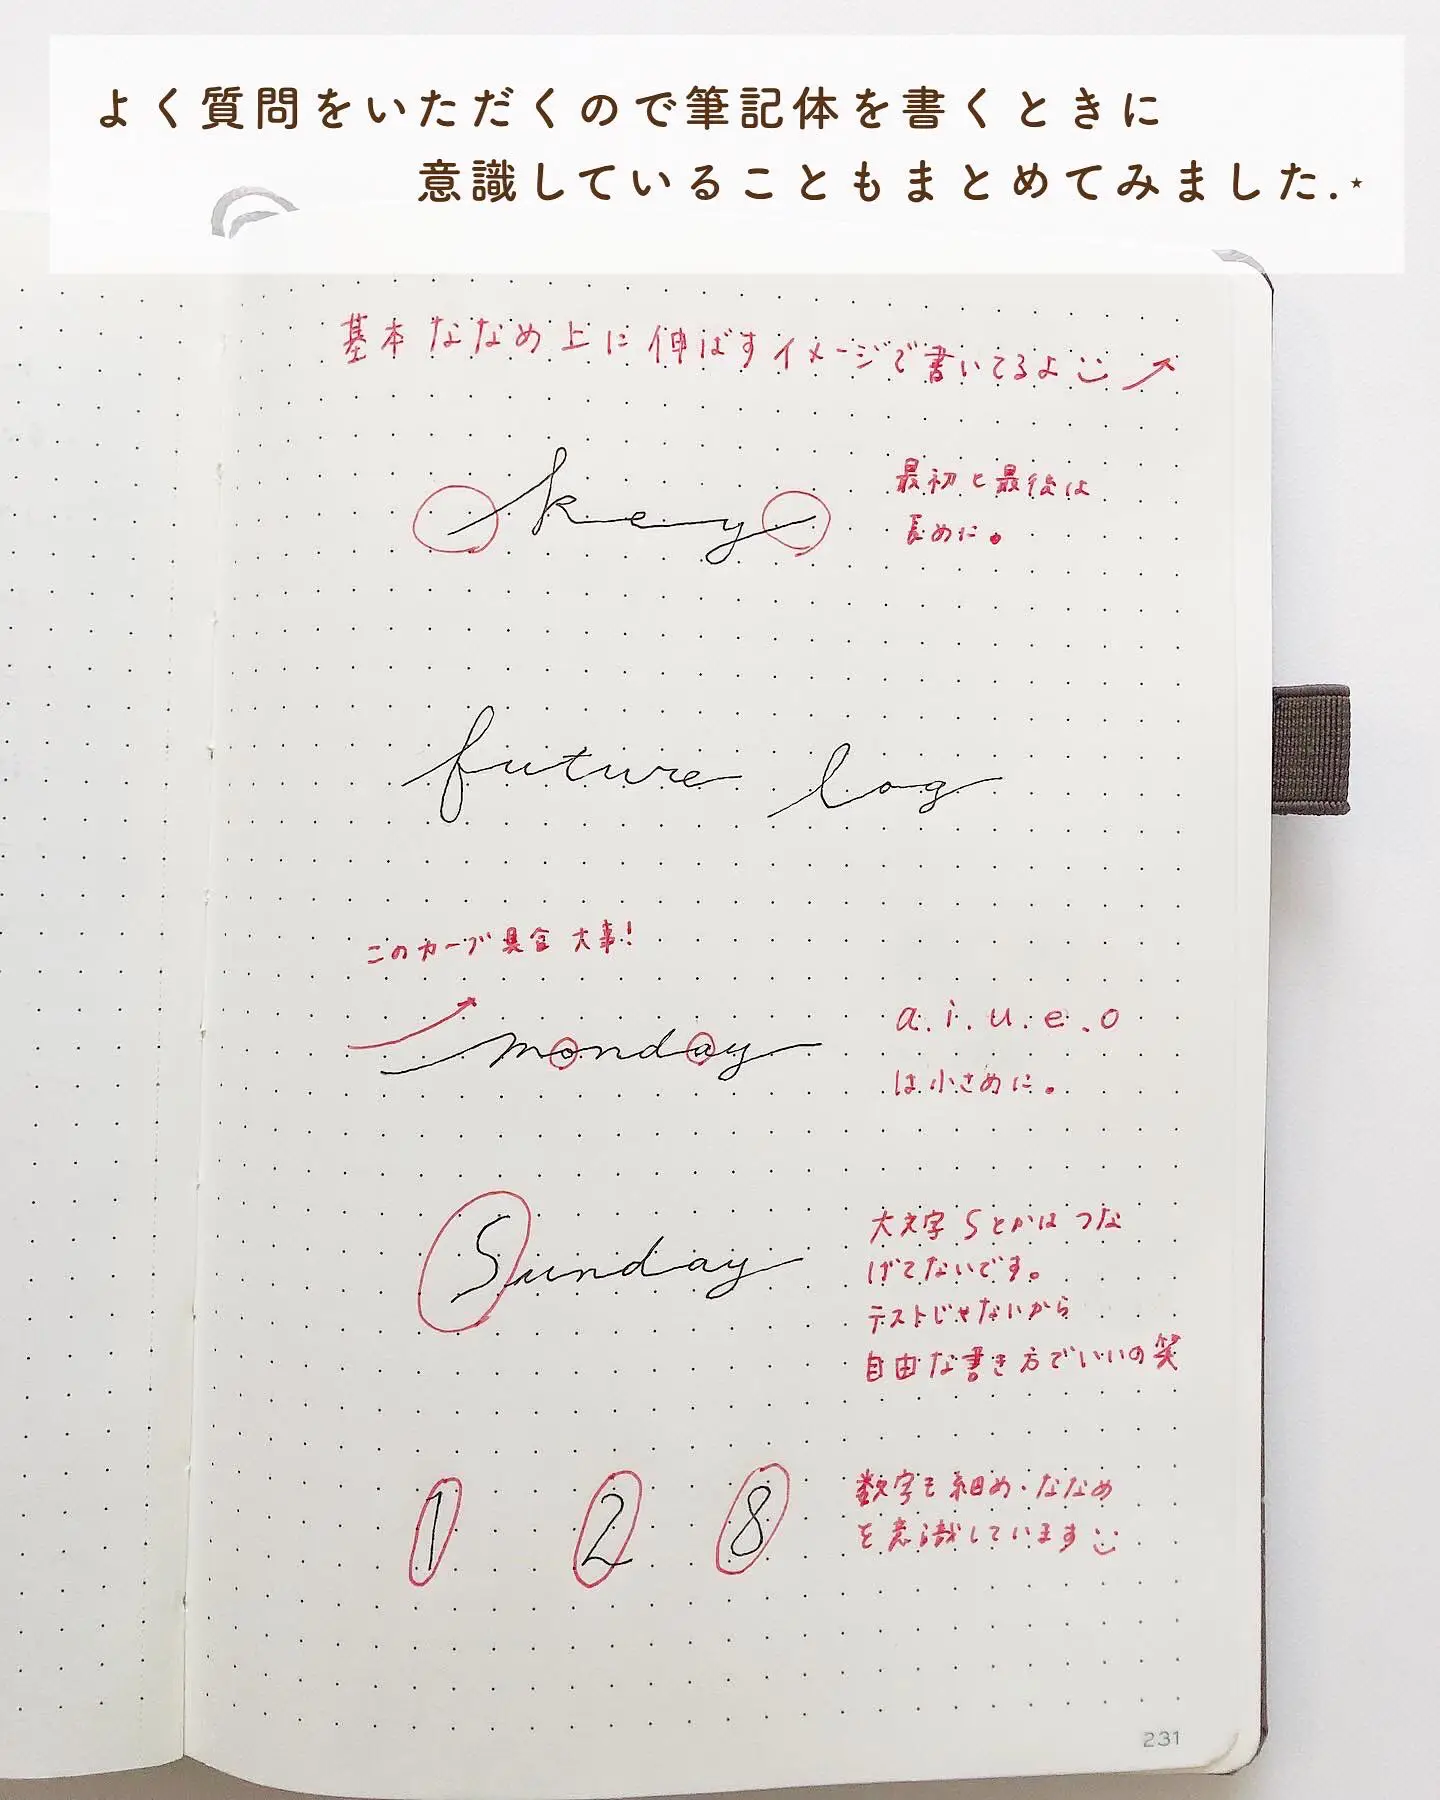 よく質問をいただくので筆記体を書くときに
意識していることもまとめてみました.⋆
基本ななめ上に伸ばすイメージで書いてるよ
key
最初と最後は
長めに。
future log
このカーブ具合大事!
monday
a.i.u.e.o
は小さめに。
Sunday
大文字Sとかはつな
げてないです。
テストじゃないから
自由な書き方でいいの笑
1 2 8
数字も細め・ななめ
を意識しています
231